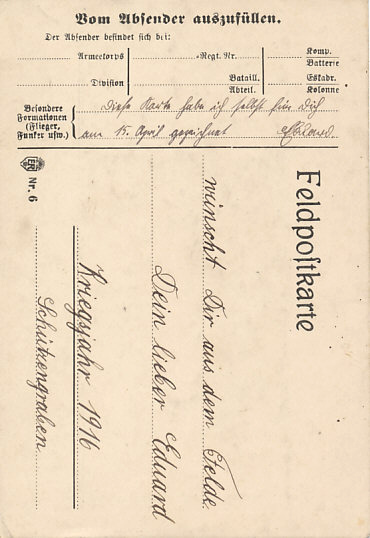 Vom Absender auszufüllen.
Der Absender befindet sich bei:
Armeekorps
Regt. Nr.
Komp.
Batterie
Division
Bataill.
Abteil.
Eskadr.
Kolonne
Besondere
Formationen
(Flieger,
Funker usw.)
Diese Karte habe ich selbst für Dich
am 15. April gezeichnet
Nr. 6
Feldpostkarte
wünscht Dir aus dem Felde
Dein lieber Eduard
Kriegsjahr 1916
Schützengraben